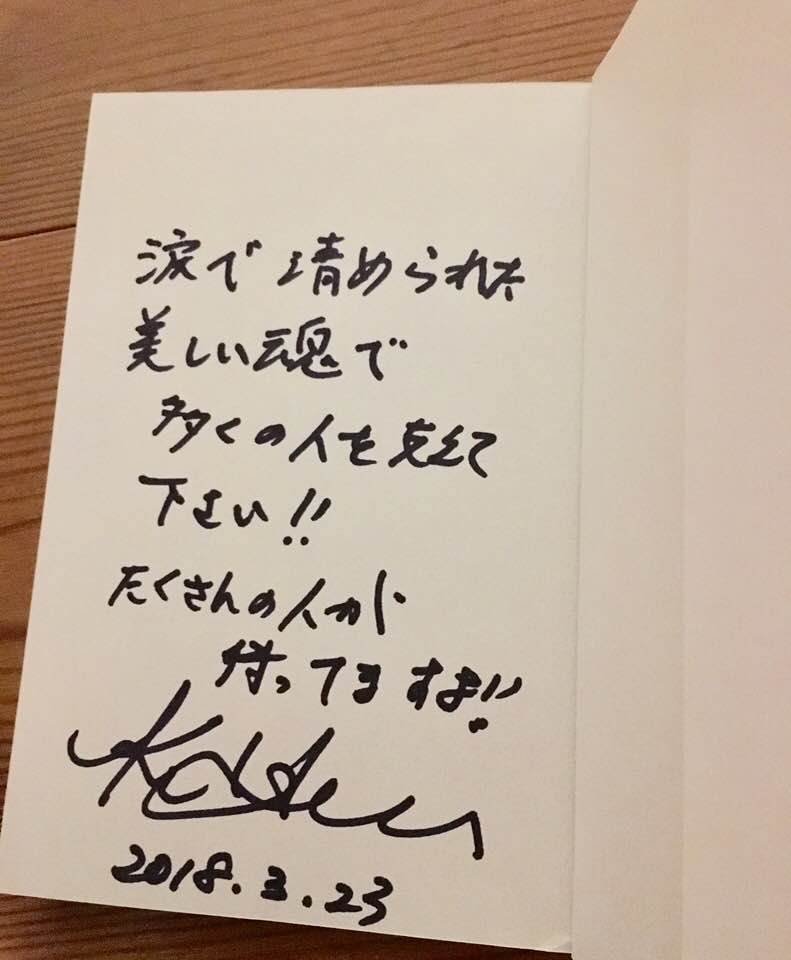 涙で清められた
美しい魂で
多くの人を支えて
下さい!!
たくさんの人が
待ってますよ!!
2018.3.23